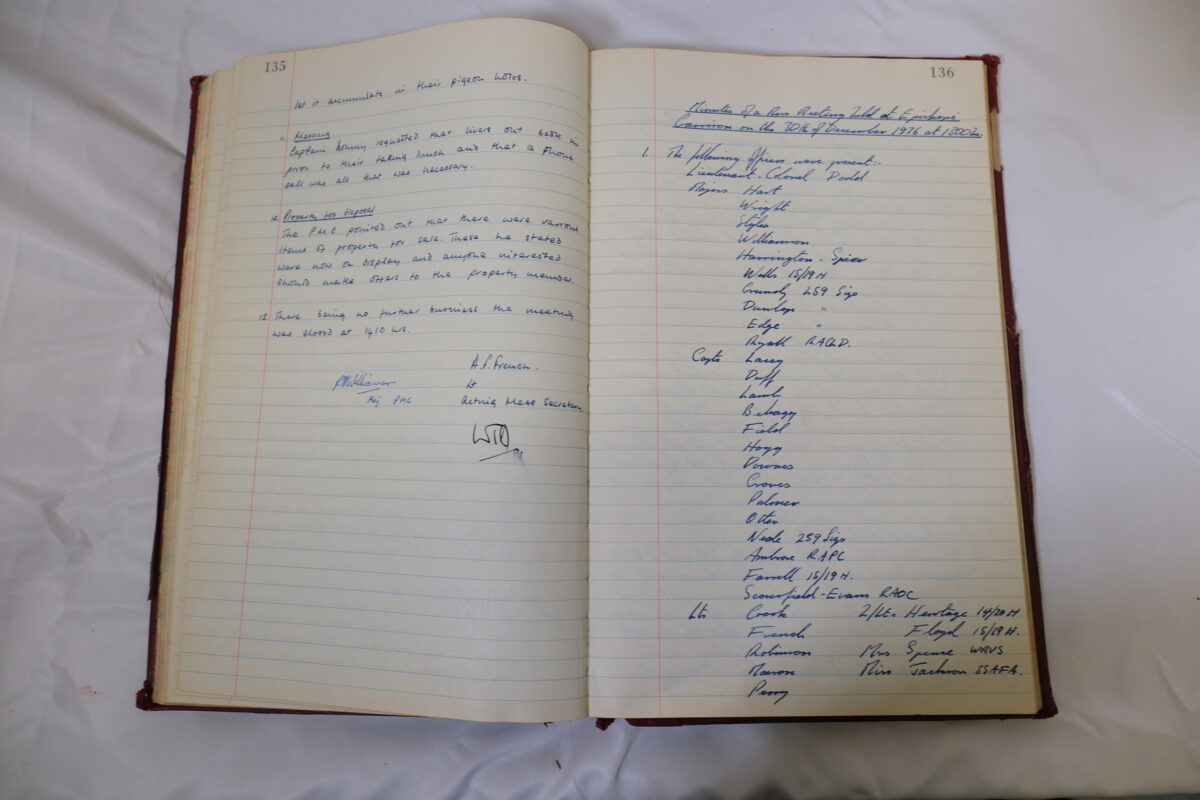 135
let it accumulate in their pigeon holes.
11. Messing
Captain requested that livers out book in
prior to their taking lunch and that a phone
call was all that was necessary.
12. Property for Disposal
The P.M.C pointed out that there were various
items of property for sale. These he stated
were now on display and anyone interested
should make offers to the property member.
13. There being no further business the meeting
was closed at 1410 hrs.
A.P. French.
Lt
Acting Mess Secretary.
PWilliamson
Maj PMC
136
Minutes of a Mess Meeting held at Episkopi
Garrison on the 30th of December 1976 at 1800 hrs
1. The following officers were present:-
Lieutenant-Colonel Dodd
Majors Hart
Wright
Styles
Williamson
Harrington-Spier
Wells 15/19 H
Grundy 259 Sigs
Dunlop "
Edge "
Ryall RAChD.
Capts Lacey
Duff
Lamb
Behagg
Field
Hogg
Downes
Groves
Palmer
Otter
Neale 259 Sigs
Ambrose RAPC
Farrell 15/19 H.
Scourfield-Evans RAOC
Lts Crook 2/Lts Heritage 14/20 H
French Floyd 15/19 H.
Robinson Mrs Spense WRVS
Mason Miss Jackson SSAFA.
Perry